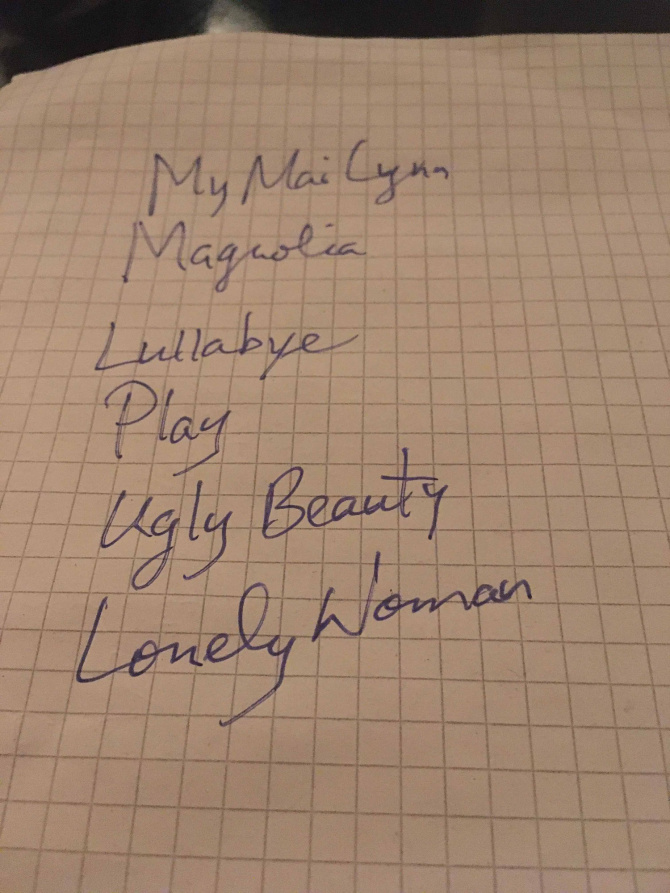 My Mai Lynn
Magnolia
Lullabye
Play
Ugly Beauty
Lonely Woman